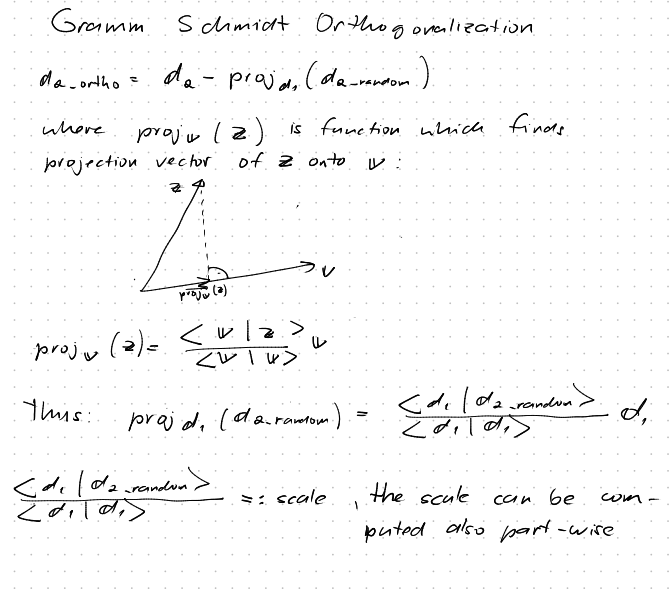 Gramm Schmidt Orthogonalization
d₂_ortho = d₂ - proj_d₁ (d₂_random)
where proj_v (z) is function which finds
projection vector of z onto v :
z
v
proj_v (z)
proj_v (z) = <v | z> / <v | v> v
Thus: proj d₁ (d₂_random) = <d₁ | d₂_random> / <d₁ | d₁> d₁
<d₁ | d₂_random> / <d₁ | d₁> =: scale , the scale can be com-
puted also part-wise